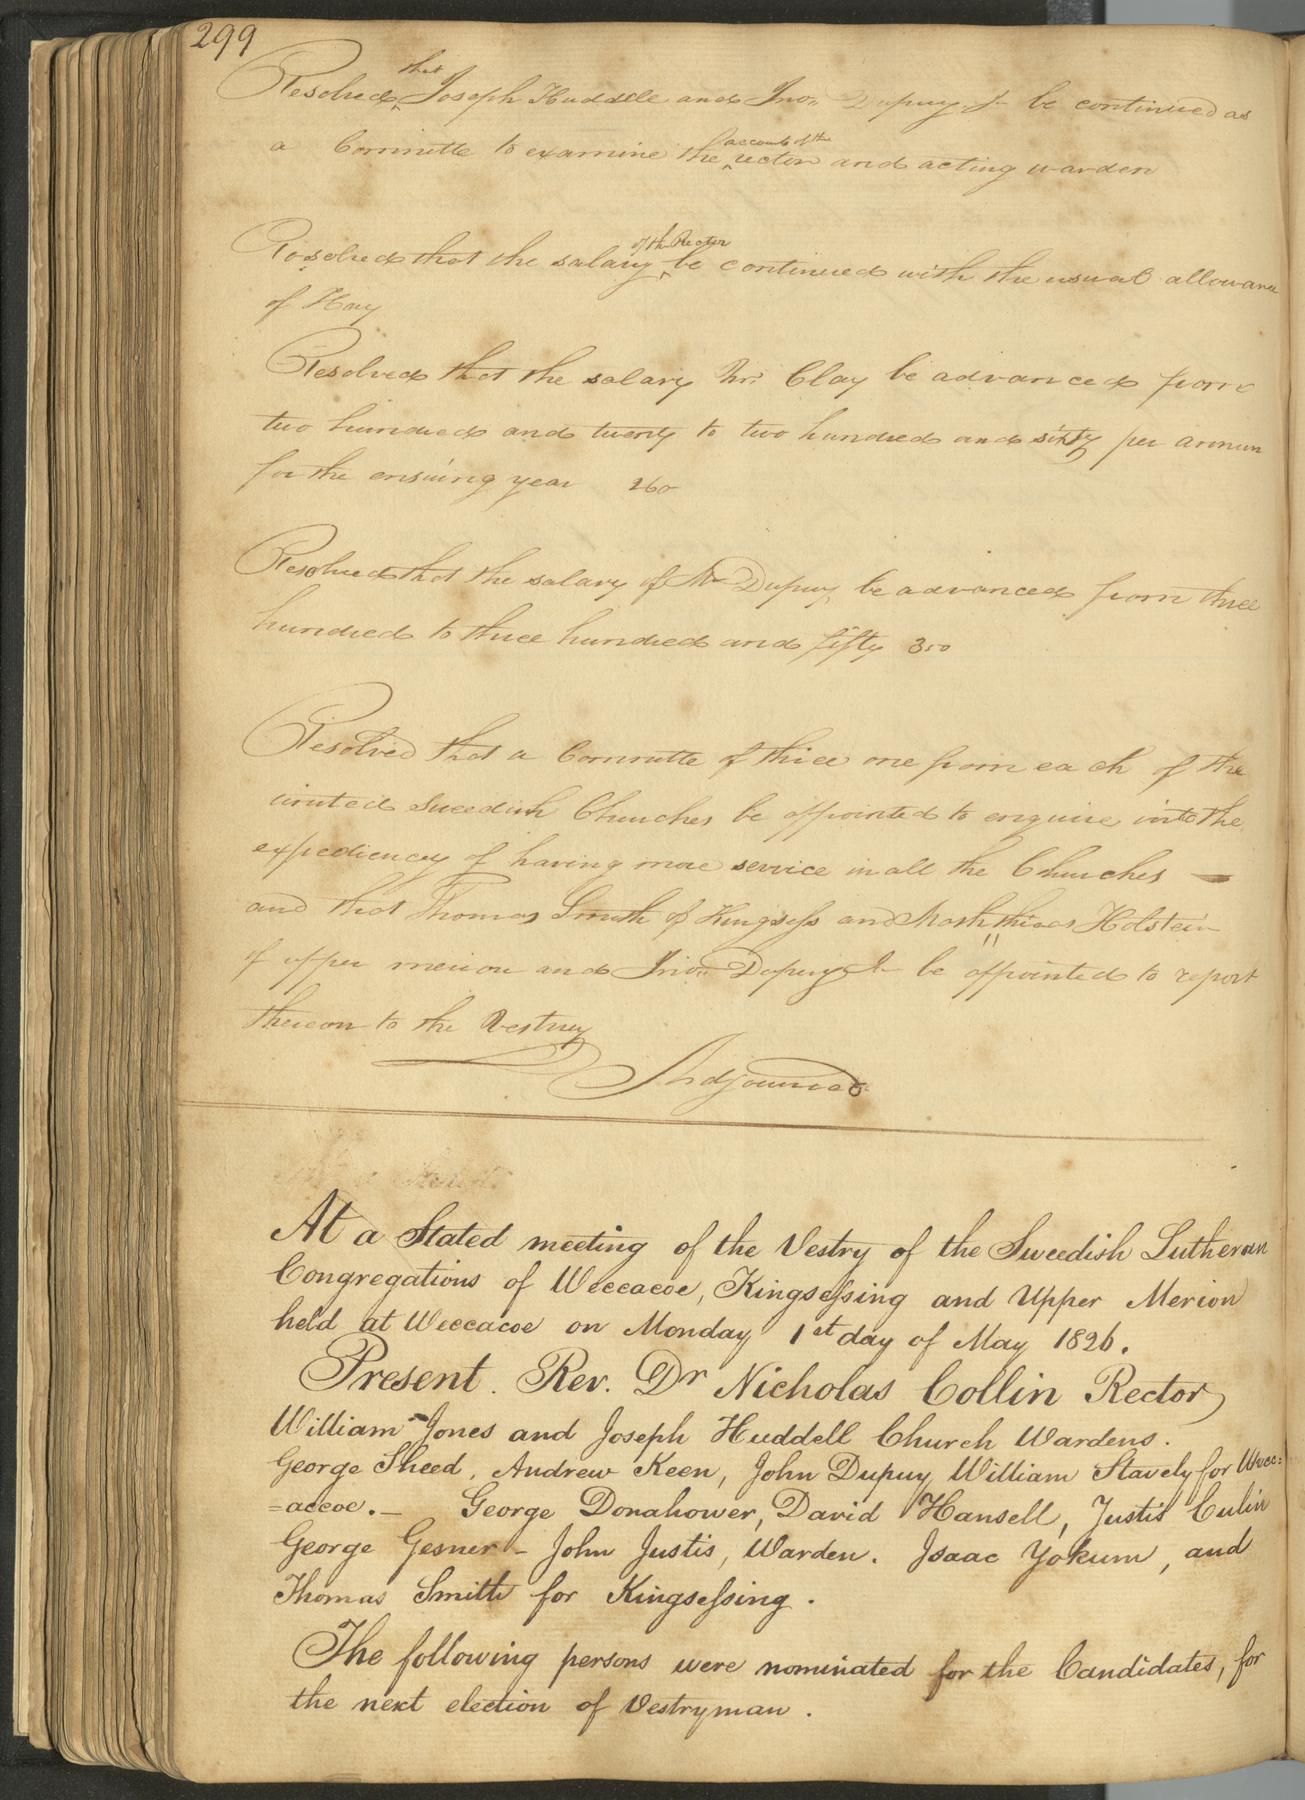 299
Resolved that Joseph Huddele and Jno. Dupuy Jr be continued as
a Committe to examine the account of th rector and acting warden
Resolved that the salary of th Rector be continued with the usual allowance
of Hay
Resolved that the salary Mr. Clay be advanced from
two hundred and twenty to two hundred and sixty per annum
for the ensuing year 260
Resolved that the salary of Mr Dupuy be advanced from three
hundred to three hundred and fifty 350
Resolved that a Committe of three one from each of the
united Sweedish Churches be appointed to enquire into the
expediency of having more service in all the Churches —
and that Thomas Smith of Kingsess and Mathias Holstein
of upper merion and Jno. Dupuy Jr be appointed to report
thereon to the Vestry
Adjourned
At a Stated meeting of the Vestry of the Sweedish Lutheran
Congregations of Weccacoe, Kingsessing and Upper Merion
held at Weccacoe on Monday 1st day of May 1826.
Present. Rev. Dr Nicholas Collin Rector
William Jones and Joseph Huddell Church Wardens.
George Sheed, Andrew Keen, John Dupuy William Stavely for Wecc=
=accoe.— George Donahower, David Hansell, Justis Culin
George Gesner - John Justis, Warden. Isaac Yokum, and
Thomas Smith for Kingsessing.
The following persons were nominated for the Candidates, for
the next election of Vestryman.